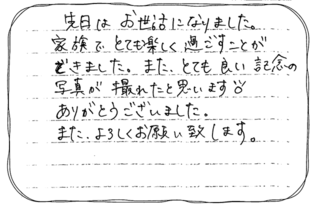 先日は お世話になりました。
家族で とても楽しく過ごすことが
できました。また、とても良い記念の
写真が 撮れたと思います
ありがとうございました。
また、よろしくお願い致します。